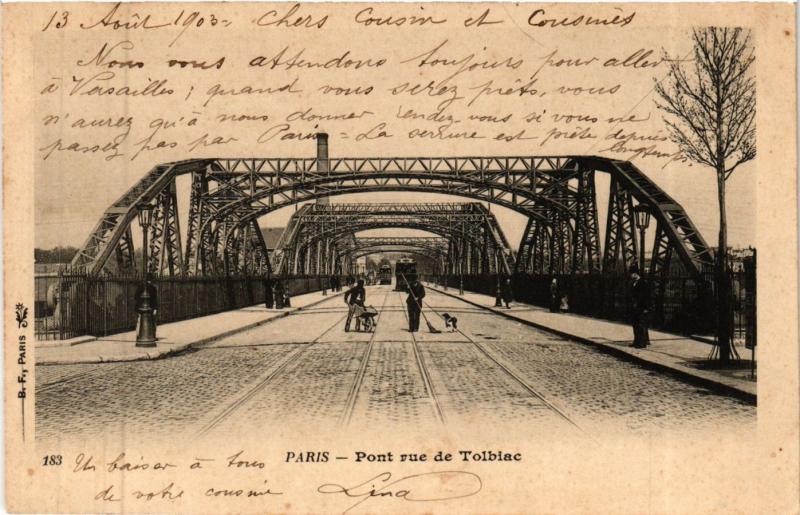 13 Août 1903 = Chers Cousin et Cousines
Nous vous attendons toujours pour aller
à Versailles ; quand vous serez prêts, vous
n'aurez qu'à nous donner rendez-vous si vous ne
passez pas par Paris = La serrure est prête depuis
longtemps
B. F., PARIS
183
PARIS – Pont rue de Tolbiac
Un baiser à tous
de votre cousine Lina